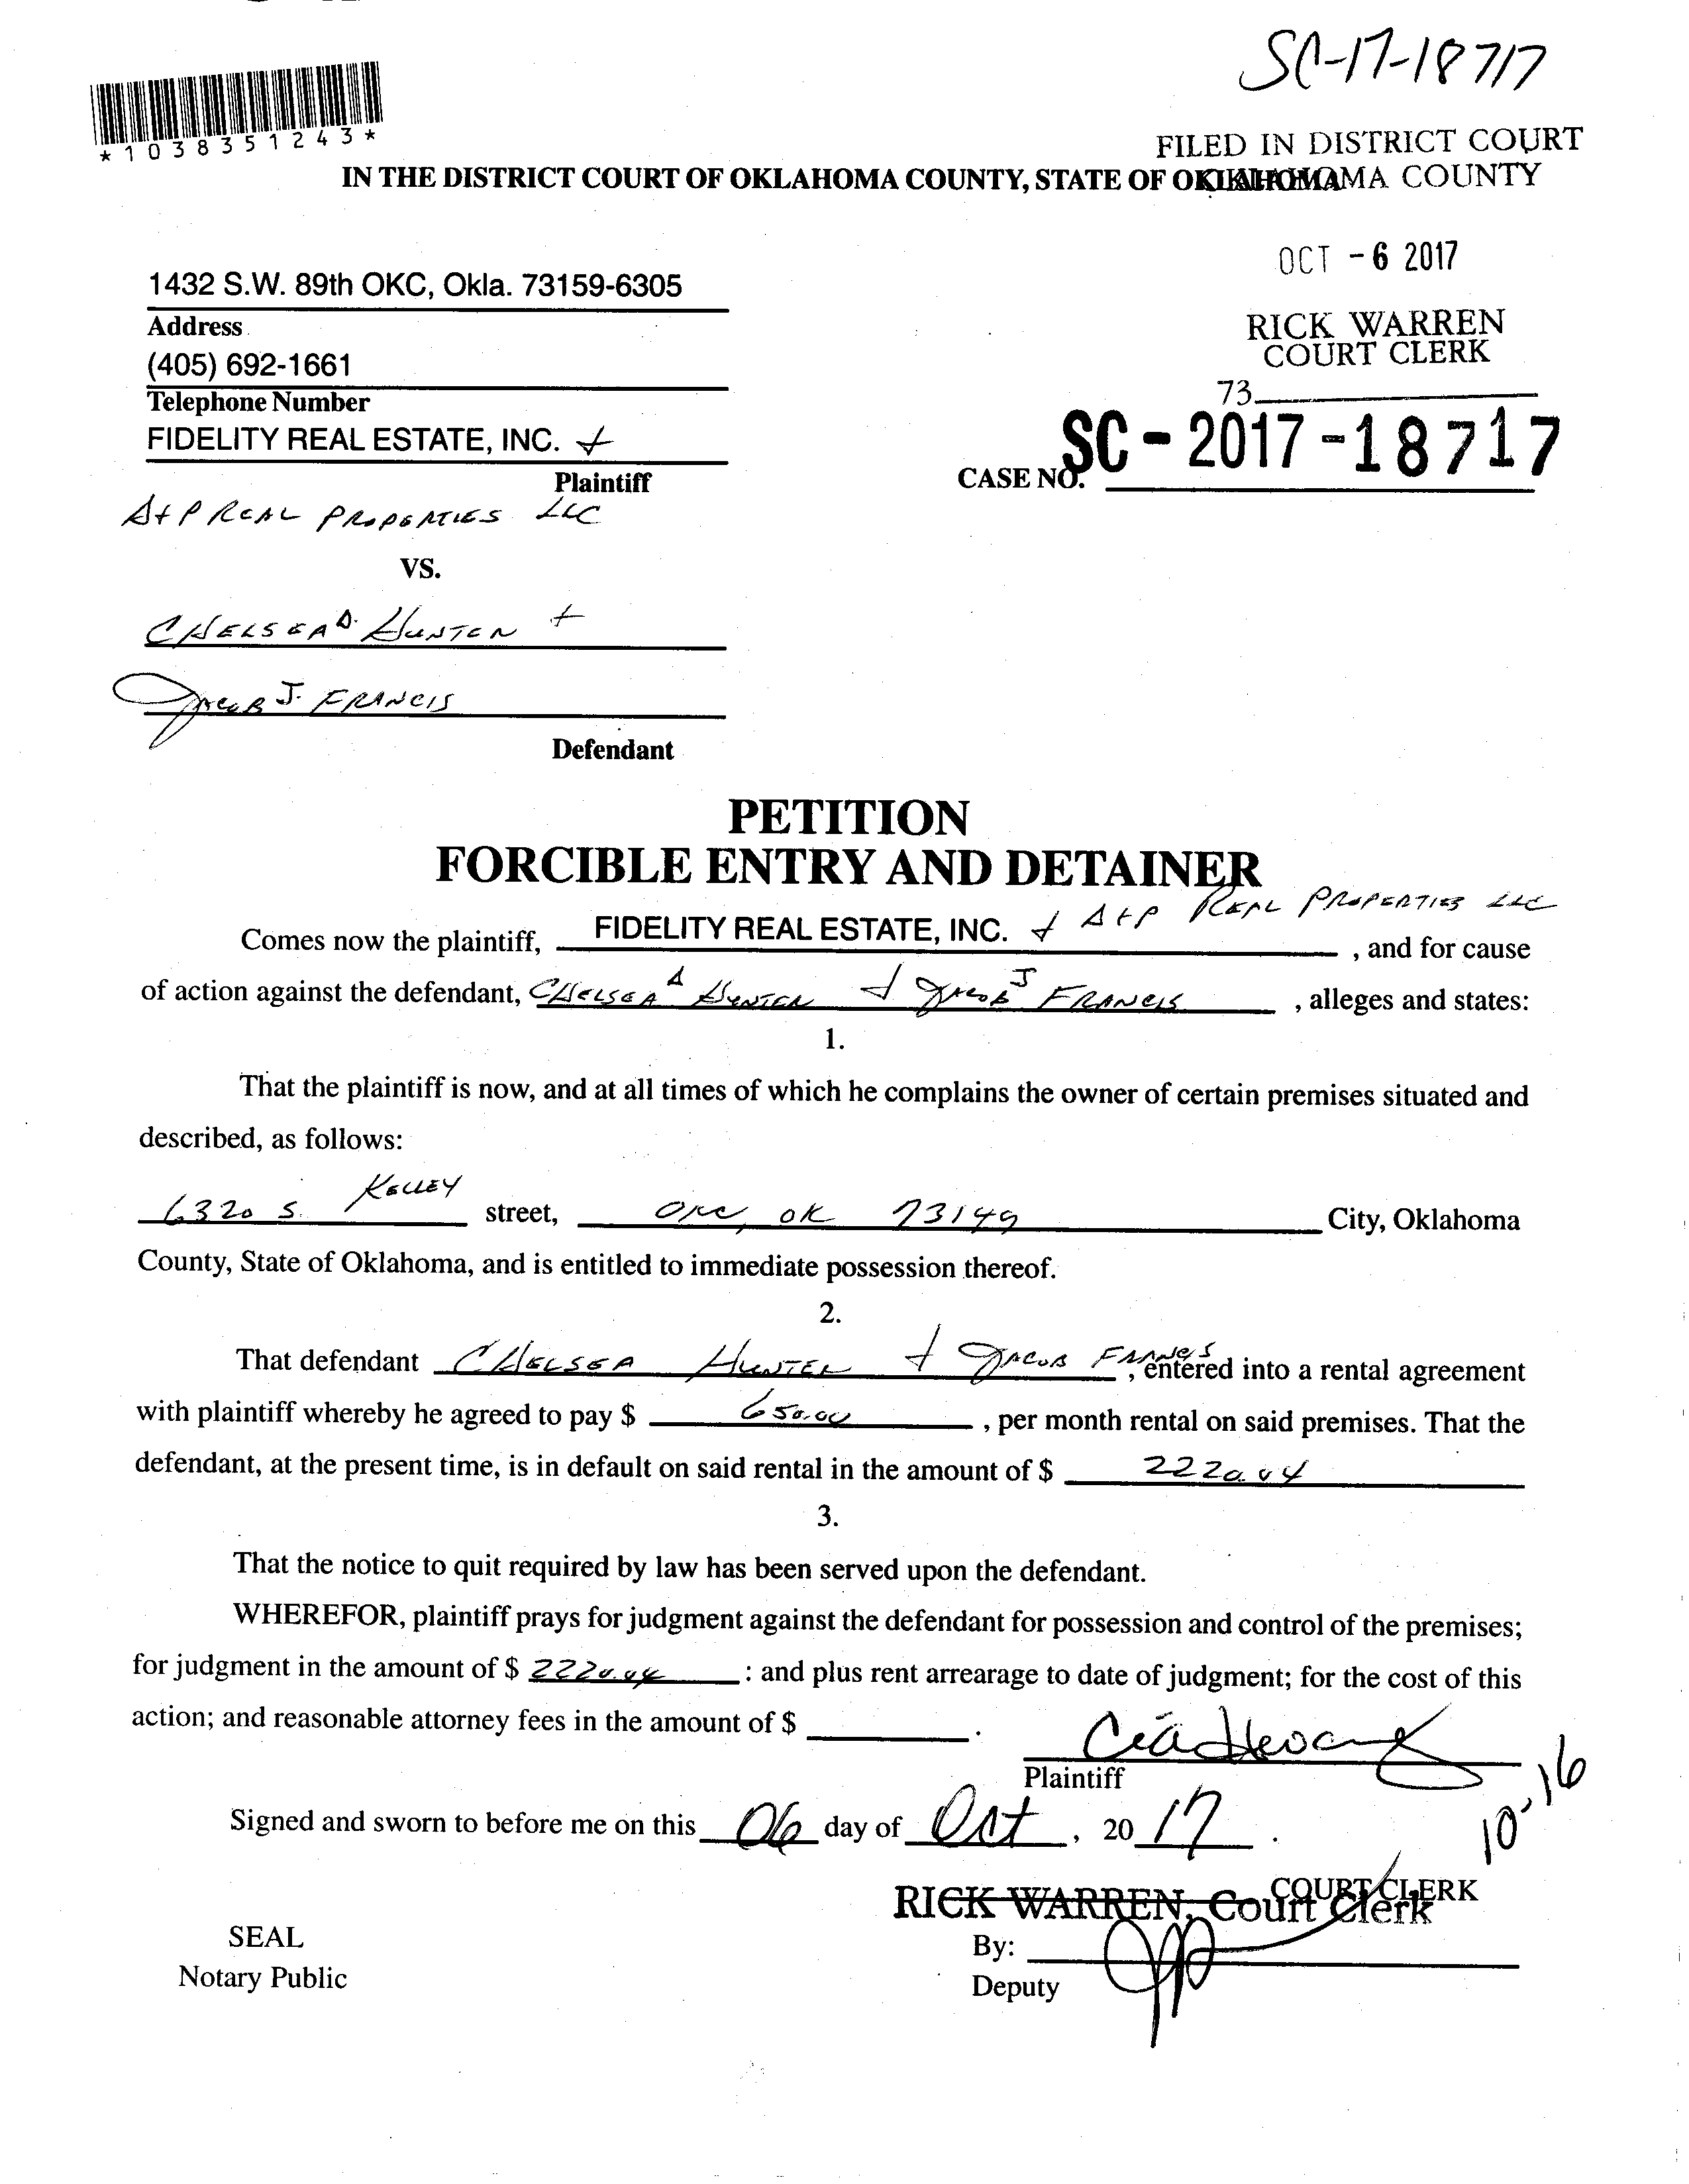 SC-17-18717
*1038351243*
FILED IN DISTRICT COURT
OKLAHOMA COUNTY
IN THE DISTRICT COURT OF OKLAHOMA COUNTY, STATE OF OKLAHOMA
OCT - 6 2017
1432 S.W. 89th OKC, Okla. 73159-6305
Address
RICK WARREN
COURT CLERK
(405) 692-1661
Telephone Number
73
FIDELITY REAL ESTATE, INC. +
CASE NO. SC - 2017 - 18717
Plaintiff
A+P REAL PROPERTIES LLC
VS.
CHELSEA D. HUNTER +
JACOB J. FRANCIS
Defendant
PETITION
FORCIBLE ENTRY AND DETAINER
Comes now the plaintiff, FIDELITY REAL ESTATE, INC. + A+P REAL PROPERTIES LLC, and for cause
of action against the defendant, CHELSEA HUNTER + JACOB J FRANCIS, alleges and states:
1.
That the plaintiff is now, and at all times of which he complains the owner of certain premises situated and
described, as follows:
6320 S. KELLEY street, OKC, OK 73149 City, Oklahoma
County, State of Oklahoma, and is entitled to immediate possession thereof.
2.
That defendant CHELSEA HUNTER + JACOB FRANCIS, entered into a rental agreement
with plaintiff whereby he agreed to pay $ 650.00, per month rental on said premises. That the
defendant, at the present time, is in default on said rental in the amount of $ 2220.04
3.
That the notice to quit required by law has been served upon the defendant.
WHEREFOR, plaintiff prays for judgment against the defendant for possession and control of the premises;
for judgment in the amount of $ 2220.04 : and plus rent arrearage to date of judgment; for the cost of this
action; and reasonable attorney fees in the amount of $ .
Plaintiff
10-16
Signed and sworn to before me on this 06 day of Oct, 20 17.
COURT CLERK
RICK WARREN, Court Clerk
SEAL
By:
Notary Public
Deputy